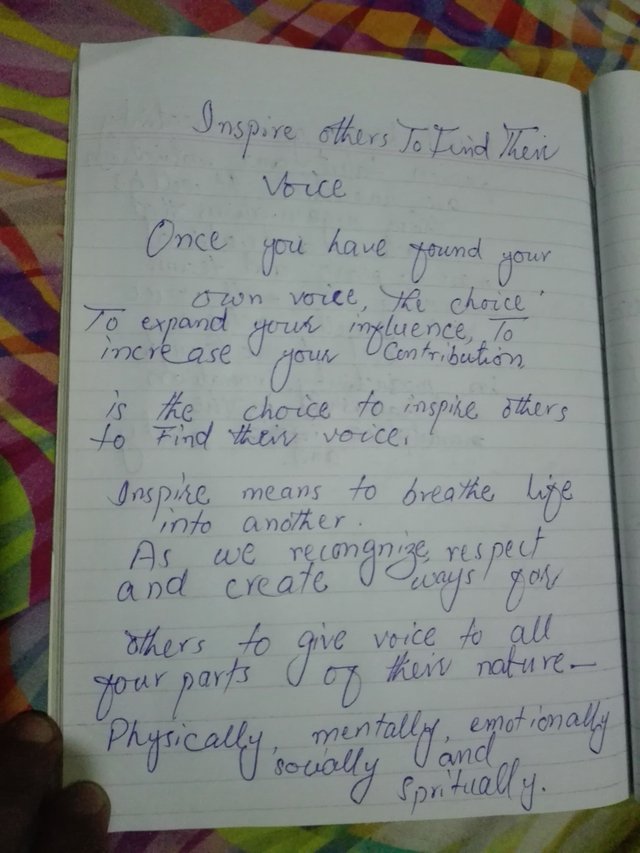 Inspire others To Find Their
Voice
Once you have found your
own voice, the choice
To expand your influence, To
increase your Contribution,
is the choice to inspire others
to Find their voice.
Inspire means to breathe life
into another.
As we recongnize, respect
and create ways for
others to give voice to all
four parts of their nature—
Physically, mentally, emotionally
socially and
spritually.